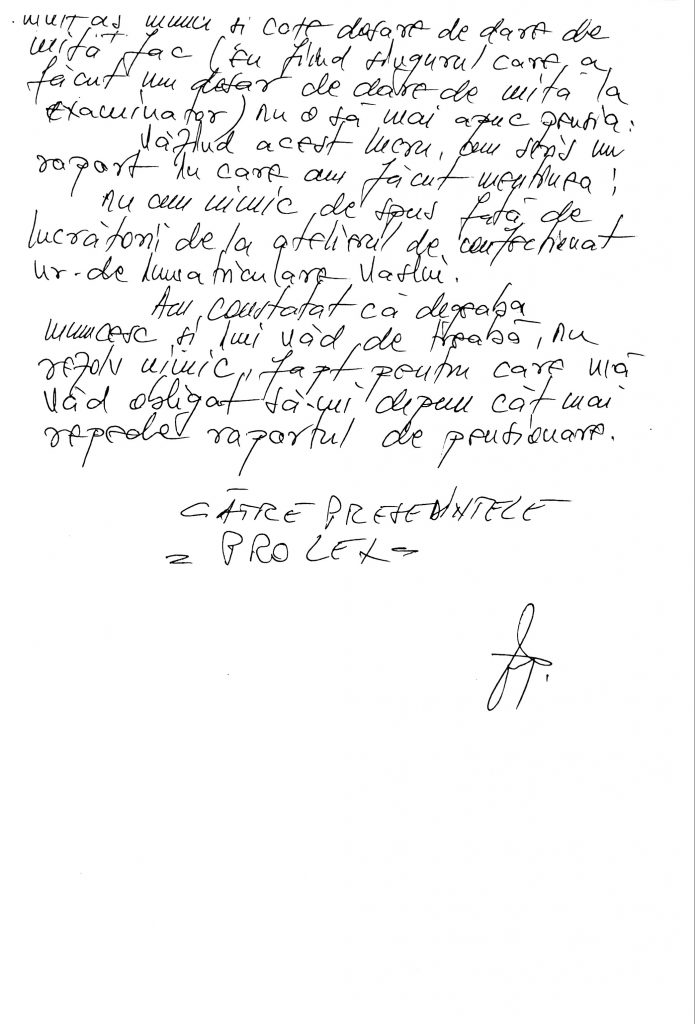 mult aș munci si cote dosare de dare de
mită fac (Eu fiind singurul care a
făcut un dosar de dare de mită la
examinator) nu o să mai apuc pensia.
Văzînd acest lucru, am scris un
raport în care am făcut mențiunea!
Nu am nimic de spus față de
lucrătorii de la atelierul de confecționat
nr. de înmatriculare Vaslui.
Am constatat că degeaba
muncesc si îmi văd de treabă, nu
rezolv nimic, fapt pentru care mă
văd obligat să-mi depun cât mai
repede raportul de pensionare.
CĂTRE PRESEDINTELE
= PRO LEX =